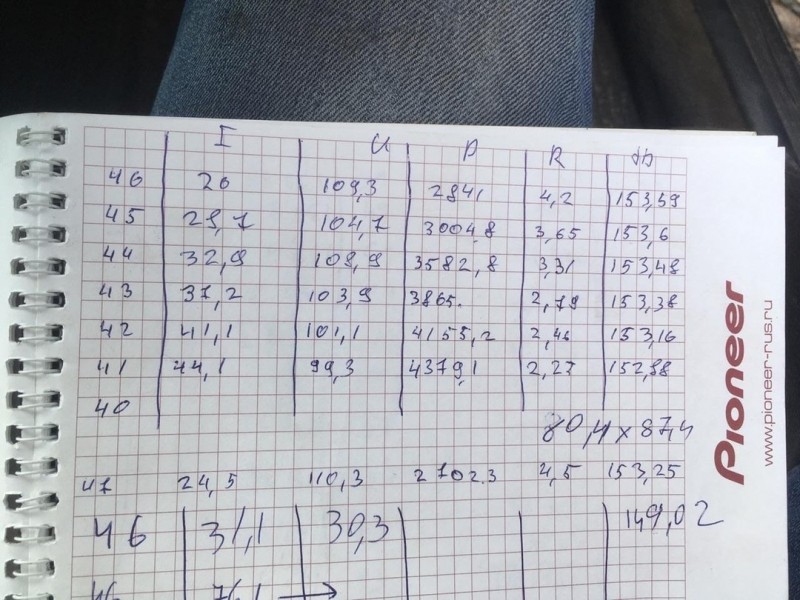 I U P R db
46 26 109,3 2841 4,2 153,59
45 28,7 104,7 3004,8 3,65 153,6
44 32,9 108,9 3582,8 3,31 153,48
43 37,2 103,9 3865. 2,79 153,38
42 41,1 101,1 4155,2 2,46 153,16
41 44,1 99,3 4379,1 2,27 152,88
40
80,4 x 87,4
47 24,5 110,3 2702,3 4,5 153,25
46 31,1 30,3 149,02
46 76,1 →
Pioneer
www.pioneer-rus.ru